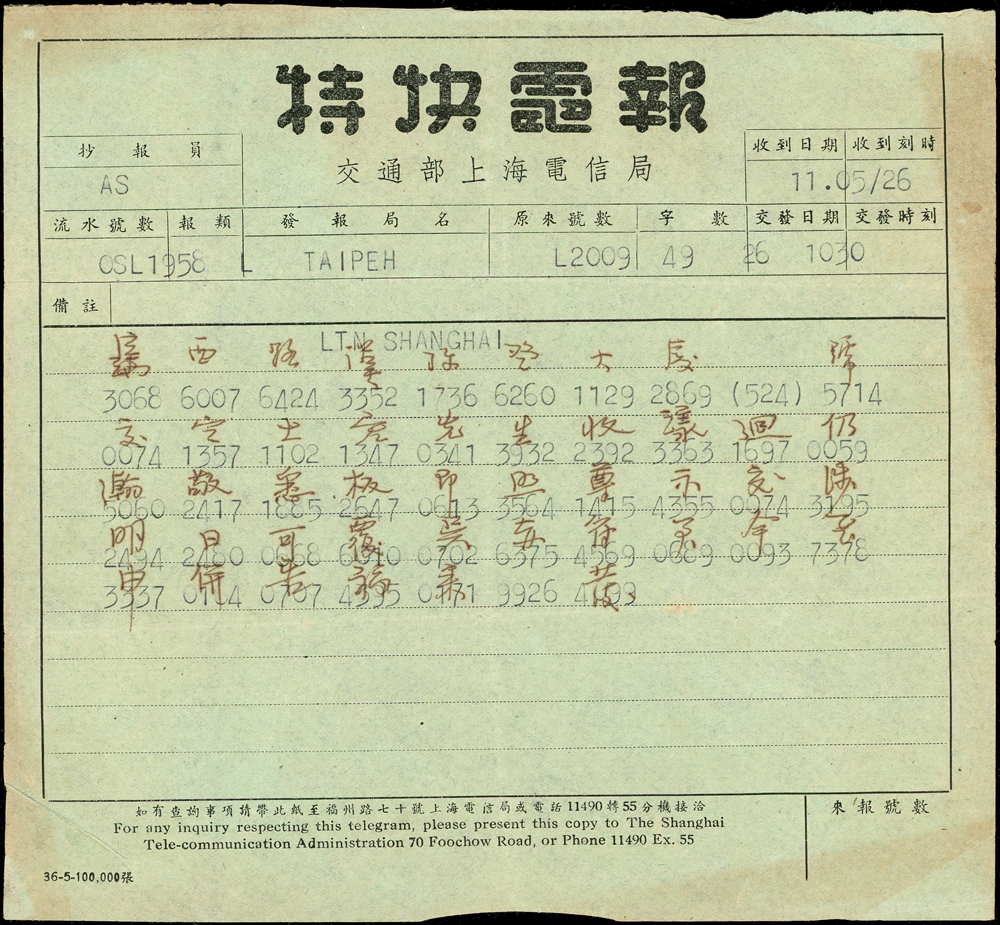 特快電報
交通部上海電信局
抄報員
AS
收到日期 收到刻時
11.05/26
流水號數 報類 發報局名 原來號數 字數 交發日期 交發時刻
OSL1958 L TAIPEH L2009 49 26 1030
備註
LTN SHANGHAI
西 路 漢 弥 登 大 廈 號
3068 6007 6424 3352 1736 6260 1129 2869 (524) 5714
交 定 士 先 生 收 迴 仍
0074 1357 1102 1347 0341 3932 2392 3363 1697 0059
瀚 敬 悉 板 即 照 尊 示 交 涉
5060 2417 1885 2647 0613 3564 1415 4355 0074 3195
明 日 可 覆 吴 弃 等 余 
2494 2480 0668 6010 0702 6375 4569 0689 0093 7378
申 併 告 福 来
3337 0104 0707 4395 0171 9926
如有查詢事項請帶此紙至福州路七十號上海電信局或電話11490轉55分機接洽
For any inquiry respecting this telegram, please present this copy to The Shanghai
Tele-communication Administration 70 Foochow Road, or Phone 11490 Ex. 55
來報號數
36-5-100,000張